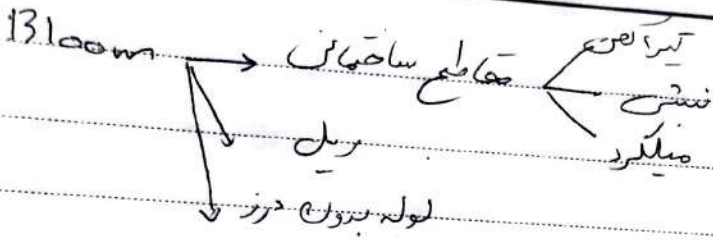 Bloom → مقاطع ساختمانی
تیرآهن
نبشی
میلگرد
ریل
لوله بدون درز